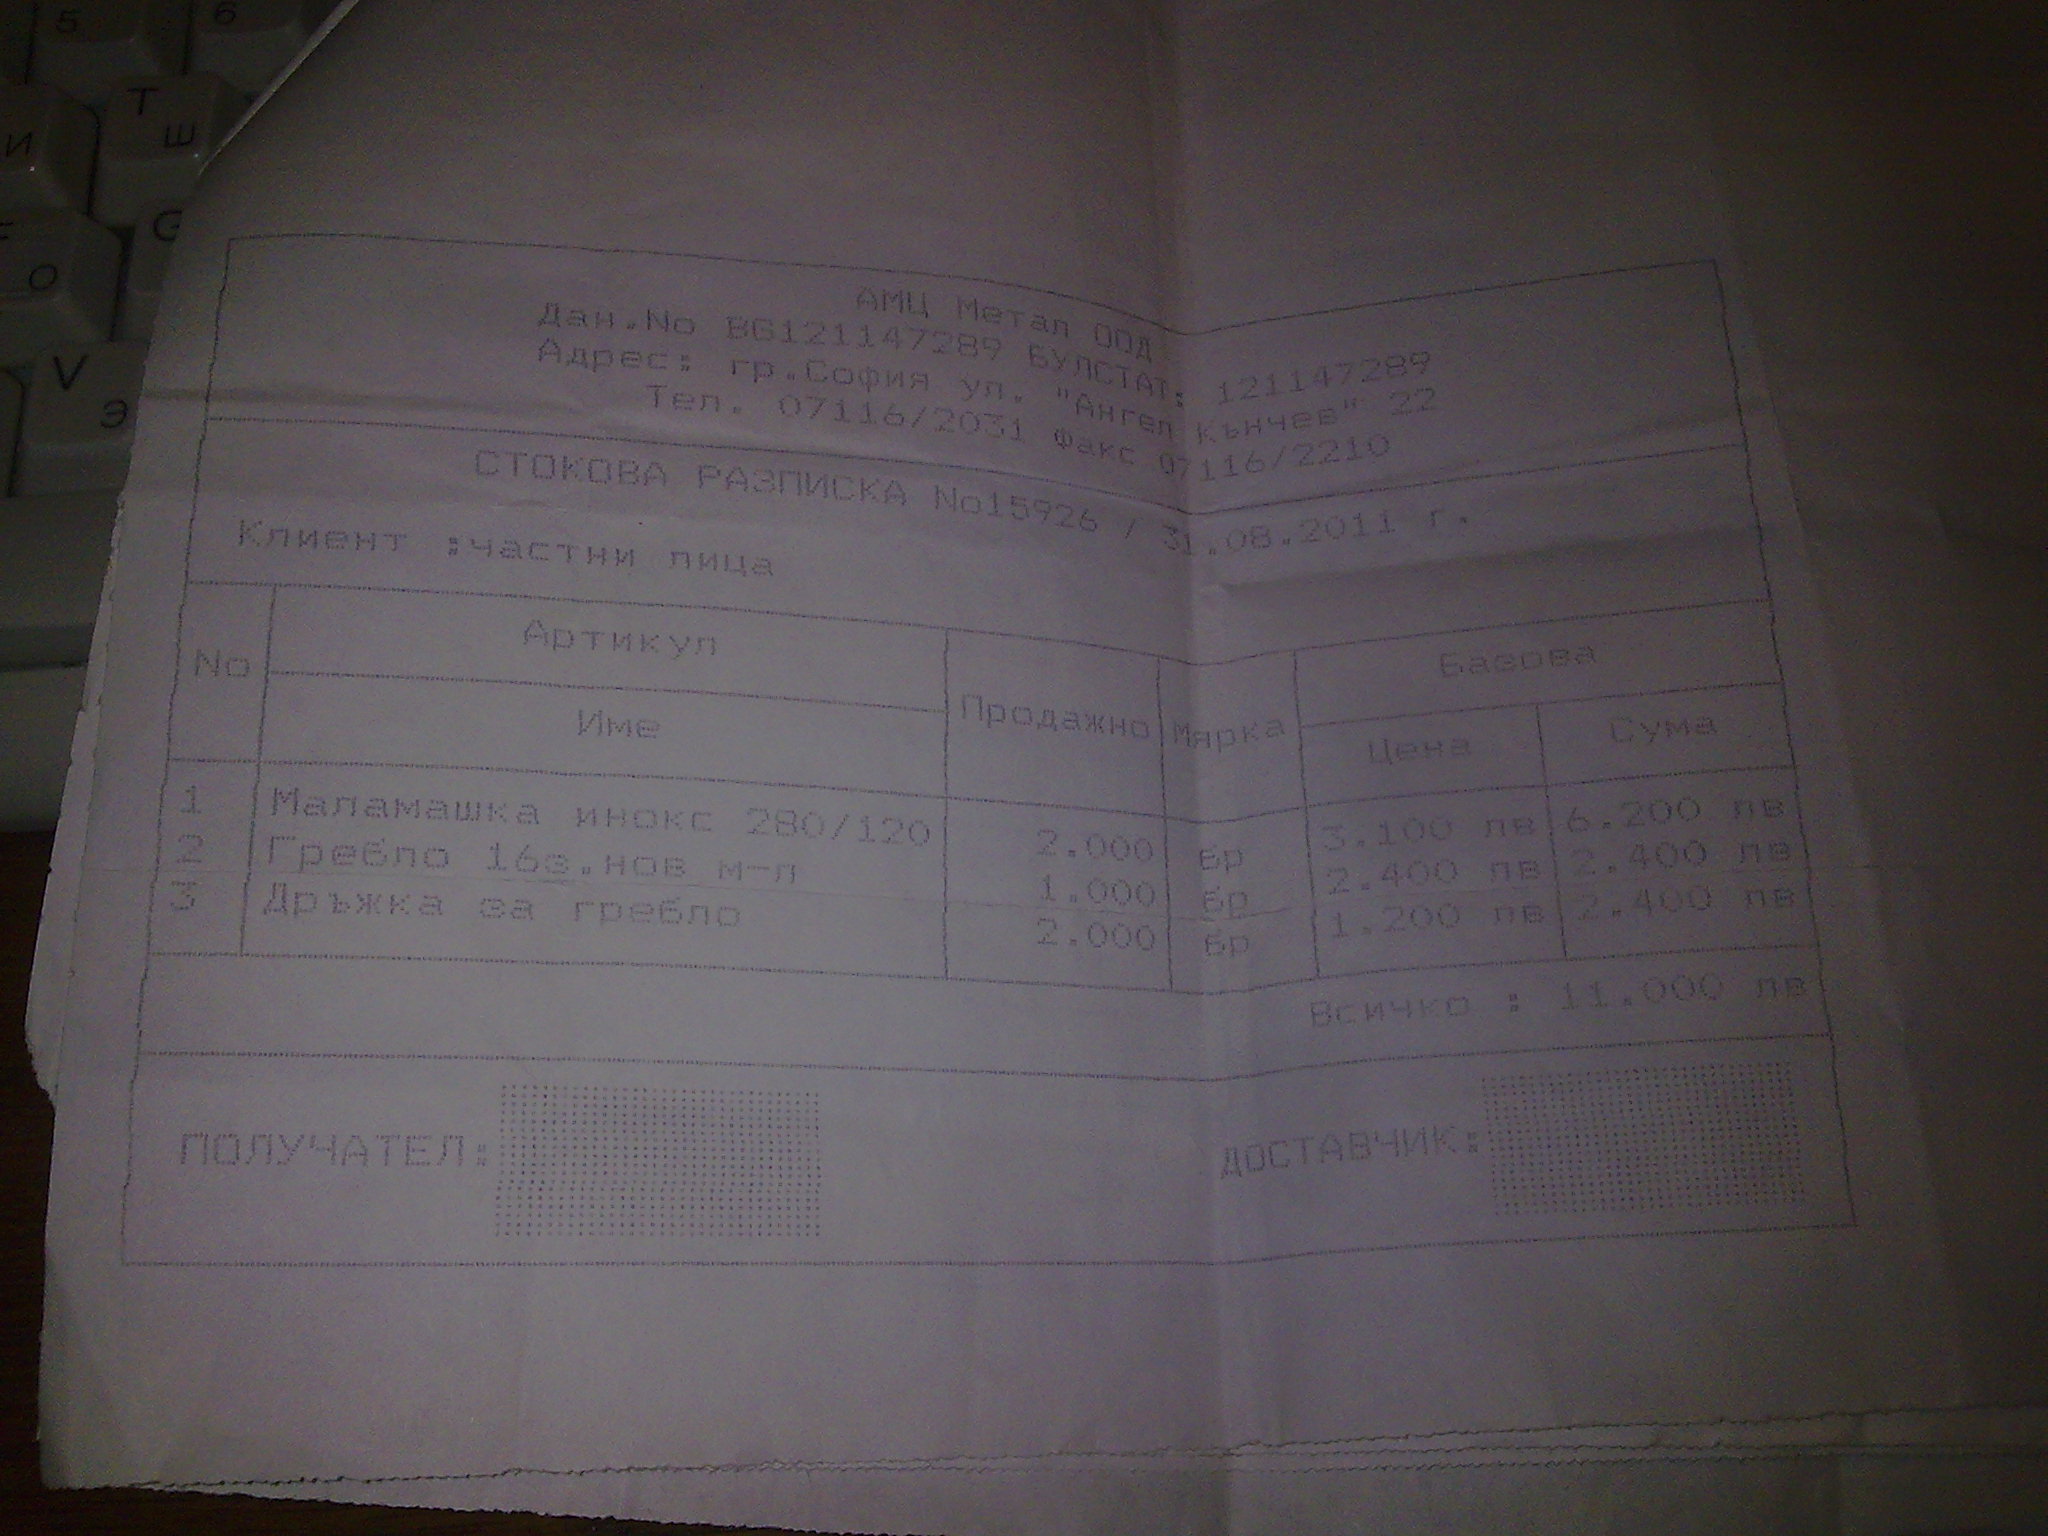 5 6
Т
И Ш
G
О
V
Э
АМЦ Метал ООД
Дан.No BG121147289 БУЛСТАТ: 121147289
Адрес: гр.София ул. "Ангел Кънчев" 22
Тел. 07116/2031 Факс 07116/2210
СТОКОВА РАЗПИСКА No15926 / 31.08.2011 г.
Клиент :частни лица
No Артикул Продажно Мярка Базова
Име Цена Сума
1 Маламашка инокс 280/120 2.000 бр 3.100 лв 6.200 лв
2 Гребло 16з.нов м-л 1.000 бр 2.400 лв 2.400 лв
3 Дръжка за гребло 2.000 бр 1.200 лв 2.400 лв
Всичко : 11.000 лв
ПОЛУЧАТЕЛ: ДОСТАВЧИК: